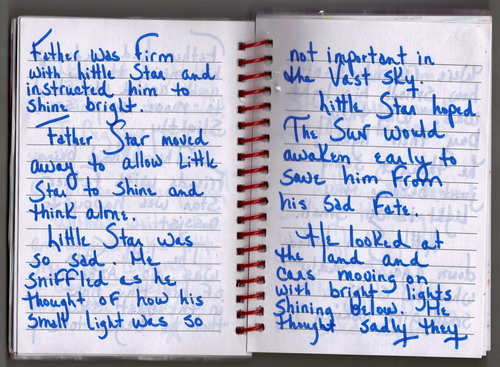 Father was firm
with Little Star and
instructed him to
shine bright.
Father Star moved
away to allow Little
Star to shine and
think alone.
Little Star was
so sad. He
sniffled as he
thought of how his
small light was so
not important in
the vast sky.
Little Star hoped
The Sun would
awaken early to
save him from
his sad fate.
He looked at
the land and
cars moving on
with bright lights
shining below. He
thought sadly they